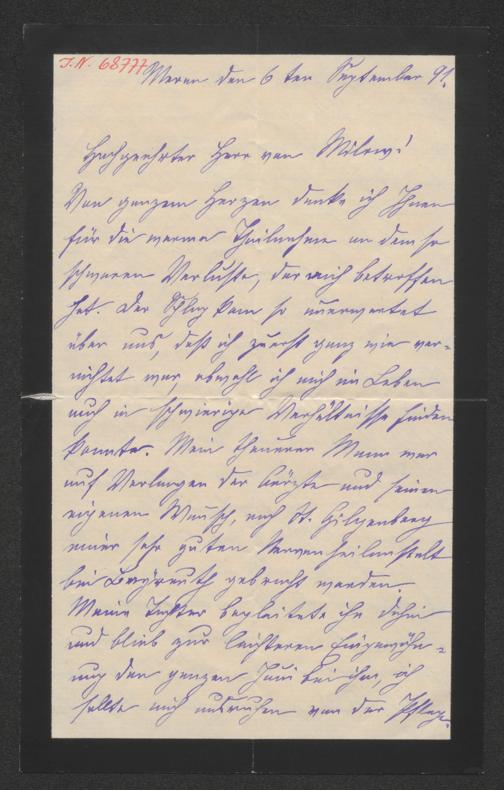 I.N. 68777
Meran den 6 ten September 91.
Hochgeehrter Herr von Milow!
Von ganzem Herzen danke ich Ihnen
für die warme Theilnahme an dem so
schweren Verluste, der mich betroffen
hat. Der Schlag kam so unerwartet
über uns, daß ich zuerst ganz wie ver-
nichtet war, obwohl ich mich im Leben
auch in schwierige Verhältnisse finden
konnte. Mein theuerer Mann war
auf Verlangen der Ärzte und seinen
eigenen Wunsch, nach St. Gilgenberg
einer sehr guten Nervenheilanstalt
bei Bayreuth gebracht worden.
Meine Tochter begleitete ihn dahin
und blieb zur leichteren Eingewöhn-
ung den ganzen Juni bei ihm, ich
sollte mich ausruhen von der Pflege,